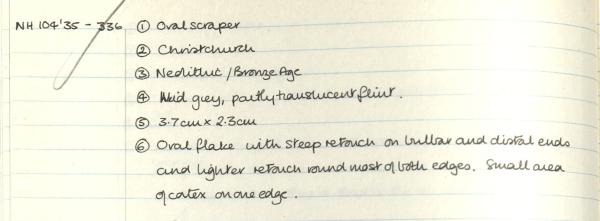 NH 104'35 - 336 ① Oval scraper
② Christchurch
③ Neolithic / Bronze Age
④ Mid grey, partly translucent flint.
⑤ 3.7cm x 2.3cm
⑥ Oval flake with steep retouch on bulbar and distal ends
and lighter retouch round most of both edges. Small area
of cotex on one edge.